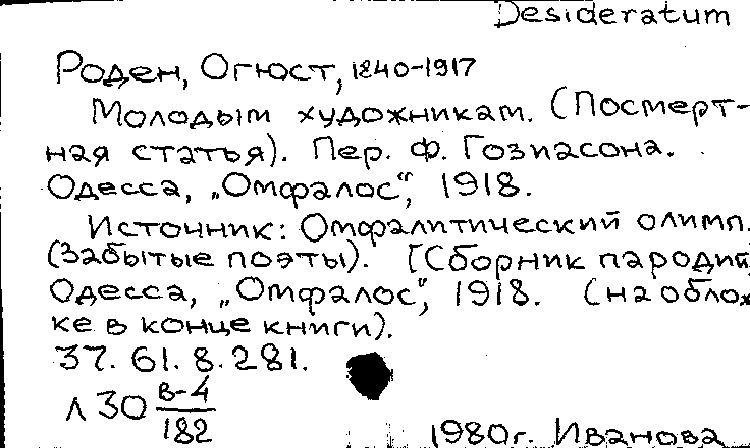 Desideratum
Роден, Огюст, 1840-1917
Молодым художникам. (Посмерт-
ная статья). Пер. Ф. Гозиасона.
Одесса, „Омфалос“, 1918.
Источник: Омфалитический олимп.
(Забытые поэты). [Сборник пародий
Одесса, „Омфалос“, 1918. (на облож
ке в конце книги).
37. 61. 8. 281.
л 30 в-4
182
1980г. Иванова